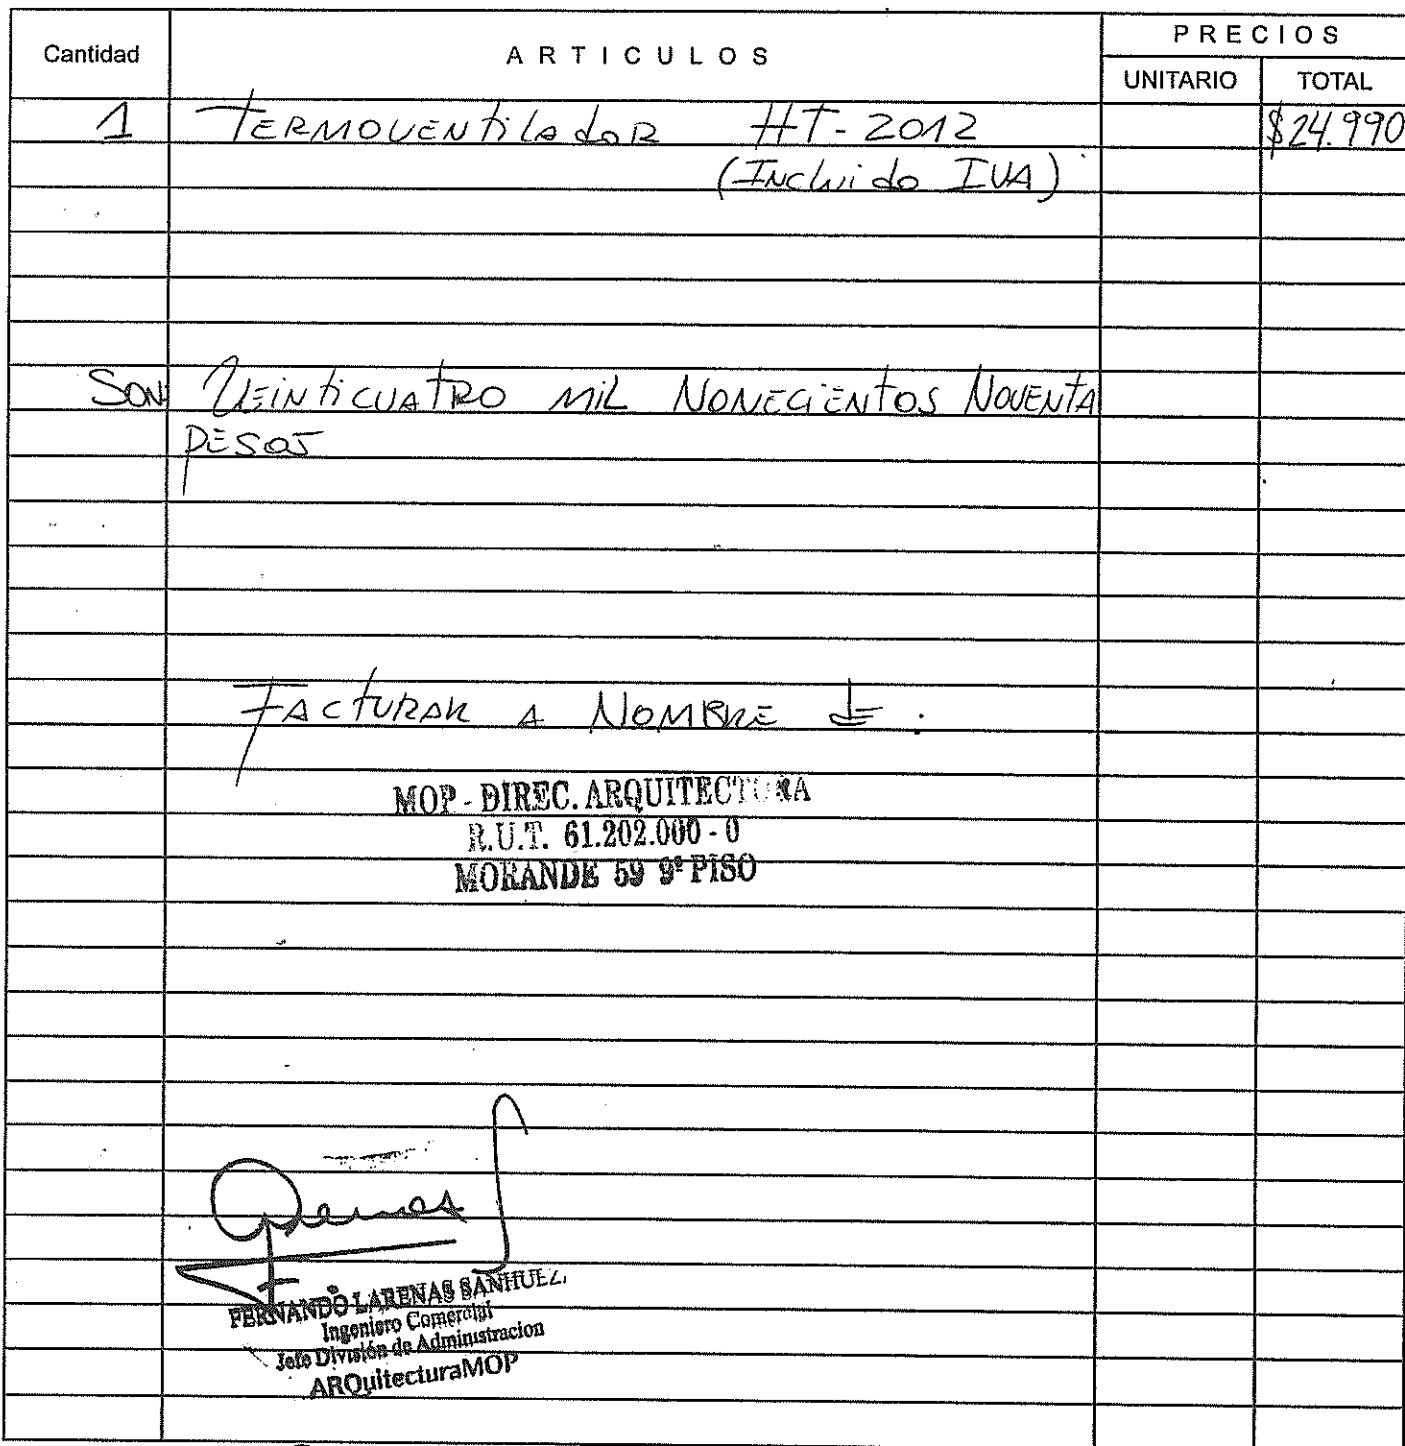 Cantidad ARTICULOS PRECIOS
UNITARIO TOTAL
1 TERMOVENTILADOR HT-2012 $24.990
(INCLUIDO IVA)
SON: VEINTICUATRO MIL NONECIENTOS NOVENTA
PESOS
FACTURAR A NOMBRE DE:
MOP - DIREC. ARQUITECTURA
R.U.T. 61.202.000 - 0
MORANDE 59 9º PISO
FERNANDO LARENAS SANHUEZ.
Ingeniero Comercial
Jefe División de Administracion
ARQuitecturaMOP